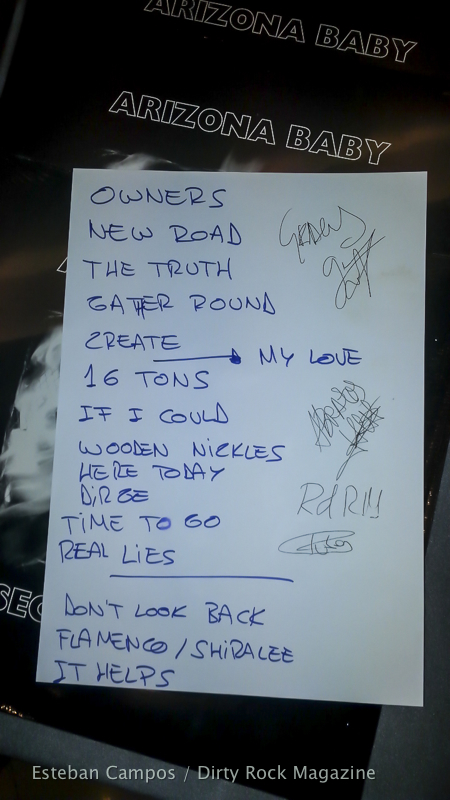 ARIZONA BABY
ARIZONA BABY
OWNERS
NEW ROAD
THE TRUTH
GATHER ROUND
CREATE
MY LOVE
16 TONS
IF I COULD
WOODEN NICKLES
HERE TODAY
DIRGE
TIME TO GO
REAL LIES
DON'T LOOK BACK
FLAMENCO / SHIRALEE
IT HELPS
GRACIAS
SEC
Esteban Campos / Dirty Rock Magazine